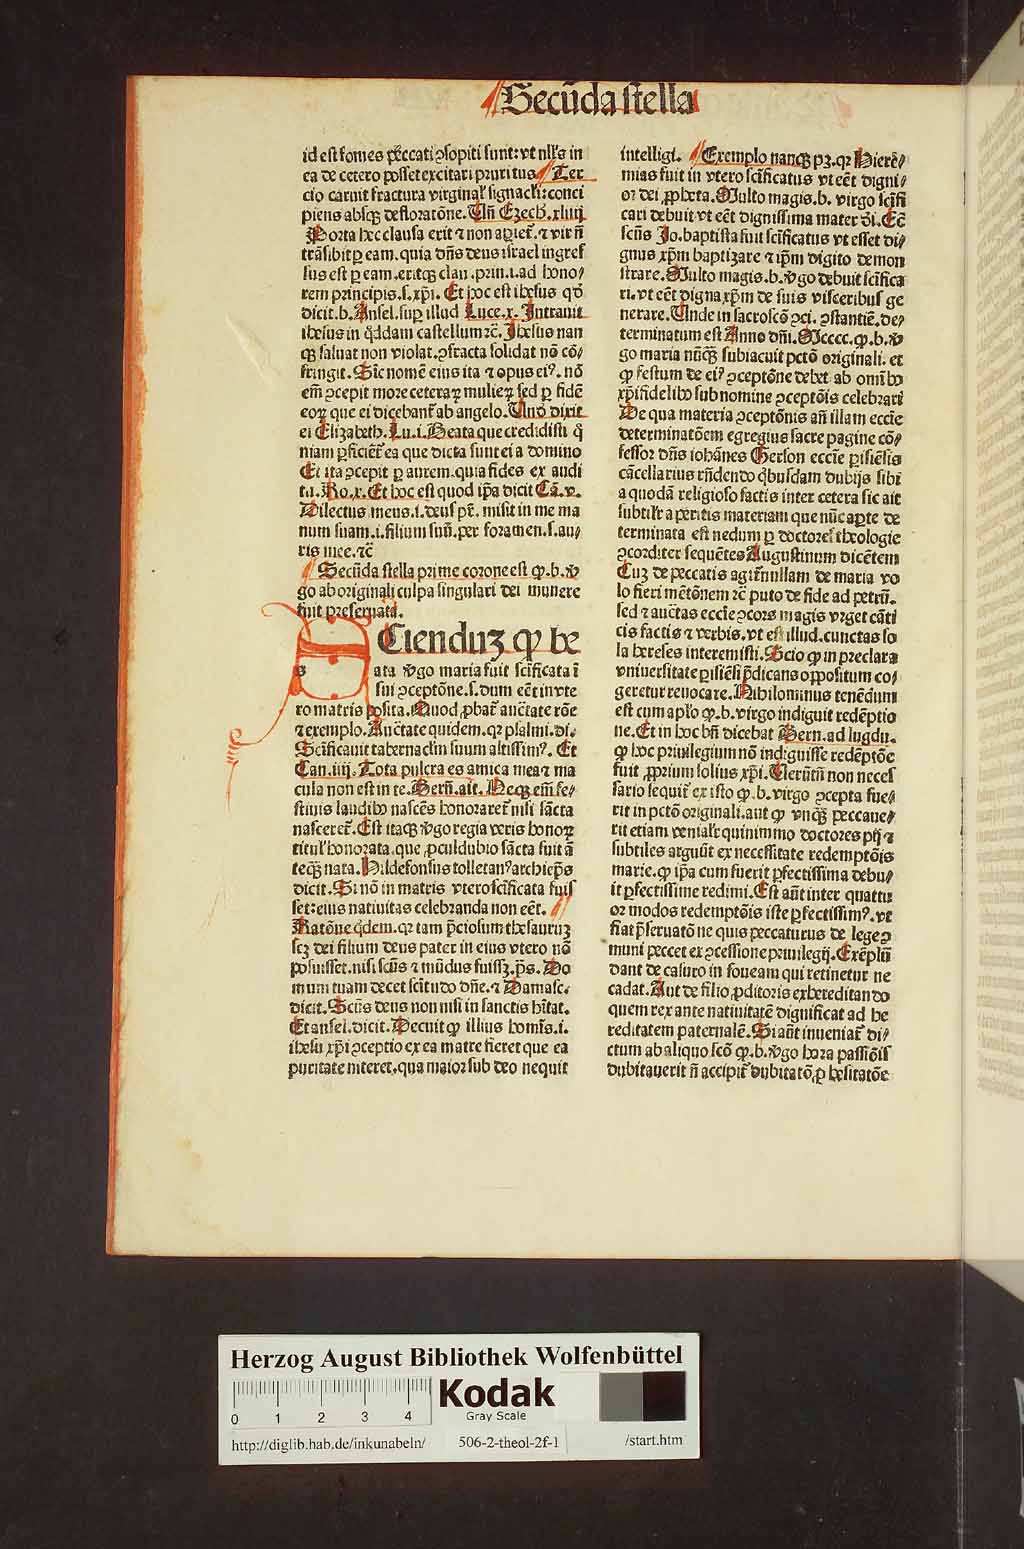 Secūda stella
id est fomes pctōcati ꝯsopiti sunt: vt nll's in
ea de cetero posset excitari pruritus. Ter
cio caruit fractura virginal' signacli: conci
piens absqꝫ defloratōne. Vn̄ Ezech. xliiij
Porta hec clausa erit ⁊ non apiet᷑. ⁊ vir n̄
trāsibit ꝑ eam. quia dn̄s deus israel ingres
sus est ꝑ eam. eritqꝫ clau. prin. i. ad hono⸗
rem principis. s. xp̄i. Et hoc est ihesus qd'
dicit. b. Ansel. suꝑ illud Luce. x. Intrauit
ihesus in q̄ddam castellum ⁊c̄. Ihesus nan
qꝫ saluat non violat. ꝯfracta solidat nō cō⸗
fringit. Sic nomē eius ita ⁊ opus eiꝰ. nō
em̄ ꝯcepit more ceteraꝝ mulieꝝ sed ꝑ fidē
eoꝝ que ei dicebant᷑ ab angelo. Vnd' dixit
ei Elizabeth. Lu. i. Beata que credidisti q̄
niam ꝑficient᷑ ea que dicta sunt ei a domino
Et ita ꝯcepit ꝑ aurem. quia fides ex audi
tu. Ro. x. Et hoc est quod ip̄a dicit Cā. v.
Dilectus meus. i. deus pr̄. misit in me ma
num suam. i. filium suū. per foramen. s. au⸗
ris mee. ⁊c̄
Secūda stella prime corone est ꝙ. b. v̄
go ab originali culpa singulari dei munere
fuit preseruata.
SCienduꝫ ꝙ be
ata v̄go maria fuit scīficata ī
sui ꝯceptōne. s. dum eēt in vte
ro matris posita. Quod ꝓbat᷑ auctāte rōe
⁊ exemplo. Auctāte quidem. qꝛ psalmi. di.
Scīficauit tabernaclm̄ suum altissimꝰ. Et
Can. iiij. Tota pulcra es amica mea ⁊ ma
cula non est in te. Bern̄. ait. Neqꝫ em̄ fe⸗
stiuis laudibꝰ nascēs honoraret᷑ nisi sācta
nasceret᷑. Est itaqꝫ v̄go regia veris honoꝝ
titul' honorata. que ꝓculdubio sācta fuit ā
teqꝫ nata. Hildefonsus tolletanꝰ archiep̄s
dicit. Si nō in matris vtero scīficata fuis
set: eius natiuitas celebranda non eēt.
Ratōne qdem. qꝛ tam p̄ciosum thesauruꝫ
scꝫ dei filium deus pater in eius vtero nō
posuisset. nisi scūs ⁊ mūdus fuissꝫ. ps̄. Do
mum tuam decet scītudo dn̄e. ⁊ Damasc.
dicit. Scūs deus non nisi in sanctis hītat.
Et ansel. dicit. Decuit ꝙ illius homīs. i.
ihesu xp̄i ꝯceptio ex ea matre fieret que ea
puritate niteret. qua maior sub deo nequit
intelligi. Exemplo nanqꝫ pꝫ. qꝛ Hiere⸗
mias fuit in vtero scīficatus vt eēt digni⸗
or dei ꝓpheta. Multo magis. b. virgo scīfi
cari debuit vt eēt dignissima mater d̄i. Et̄
scūs Jo. baptista fuit scīficatus vt esset di⸗
gnus xp̄m baptizare ⁊ ip̄m digito demon
strare. Multo magis. b. v̄go debuit scīfica
ri. vt eēt digna xp̄m de suis visceribus ge
nerare. Unde in sacroscō ꝯci. ꝯstantiē. de⸗
terminatum est Anno dn̄i. Mcccc. ꝙ. b. v̄
go maria nūqꝫ subiacuit pctō originali. et
ꝙ festum de eiꝰ ꝯceptōne debet ab omībꝰ
xp̄ifidelibꝰ sub nomine ꝯceptōis celebrari
De qua materia ꝯceptōnis an̄ illam eccīe
determinatōem egregius sacre pagine cō⸗
fessor dn̄s iohānes Gerson eccīe ꝑisiēsis
cācellarius rn̄dendo qbusdam dubijs sibi
a quodā religioso factis inter cetera sic ait
subtil'r a peritis materiam que nūc aꝑte de
terminata est nedum ꝑ doctores theologie
ꝯcorditer sequētes Augustinum dicētem
Cuꝫ de peccatis agit᷑ nullam de maria vo
lo fieri mētōnem ⁊c̄ puto de fide ad petrū.
sed ⁊ auctas eccīe ꝯcors magis vrget cāti
cis factis ⁊ verbis. vt est illud. cunctas so
la hereses interemisti. Scio ꝙ in preclara
vniuersitate ꝑisiēsi p̄dicans oppositum co⸗
geretur reuocare. Nihilominus tenēdum
est cum apl'o ꝙ. b. virgo indiguit redēptio
ne. Et in hoc bn̄ dicebat Bern. ad lugdu.
ꝙ hoc priuilegium nō indiguisse redēptōe
fuit ꝓprium solius xp̄i. Uerūtn̄ non neces
sario sequit᷑ ex isto ꝙ. b. virgo ꝯcepta fue⸗
rit in pctō originali. aut ꝙ vnqꝫ peccaue⸗
rit etiam venial'r quinimmo doctores pij ⁊
subtiles arguūt ex necessitate redemptōis
marie. ꝙ ip̄a cum fuerit ꝑfectissima debu⸗
it ꝑfectissime redimi. Est aūt inter quattu
or modos redemptōis iste ꝑfectissimꝰ. vt
fiat p̄seruatō ne quis peccaturus de lege ꝯ
muni peccet ex ꝯcessione priuilegij. Exēplū
dant de casuro in foueam qui retinetur ne
cadat. Aut de filio ꝓditoris exhereditando
quem rex ante natiuitatē dignificat ad he
reditatem paternalē. Si aūt inueniat᷑ di⸗
ctum ab aliquo scō ꝙ. b. v̄go hora passiōis
dubitauerit n̄ accipit᷑ dubitatō, ꝑ hesitatōe
Herzog August Bibliothek Wolfenbüttel
0 1 2 3 4
Kodak
Gray Scale
http://diglib.hab.de/inkunabeln/ 506-2-theol-2f-1 /start.htm